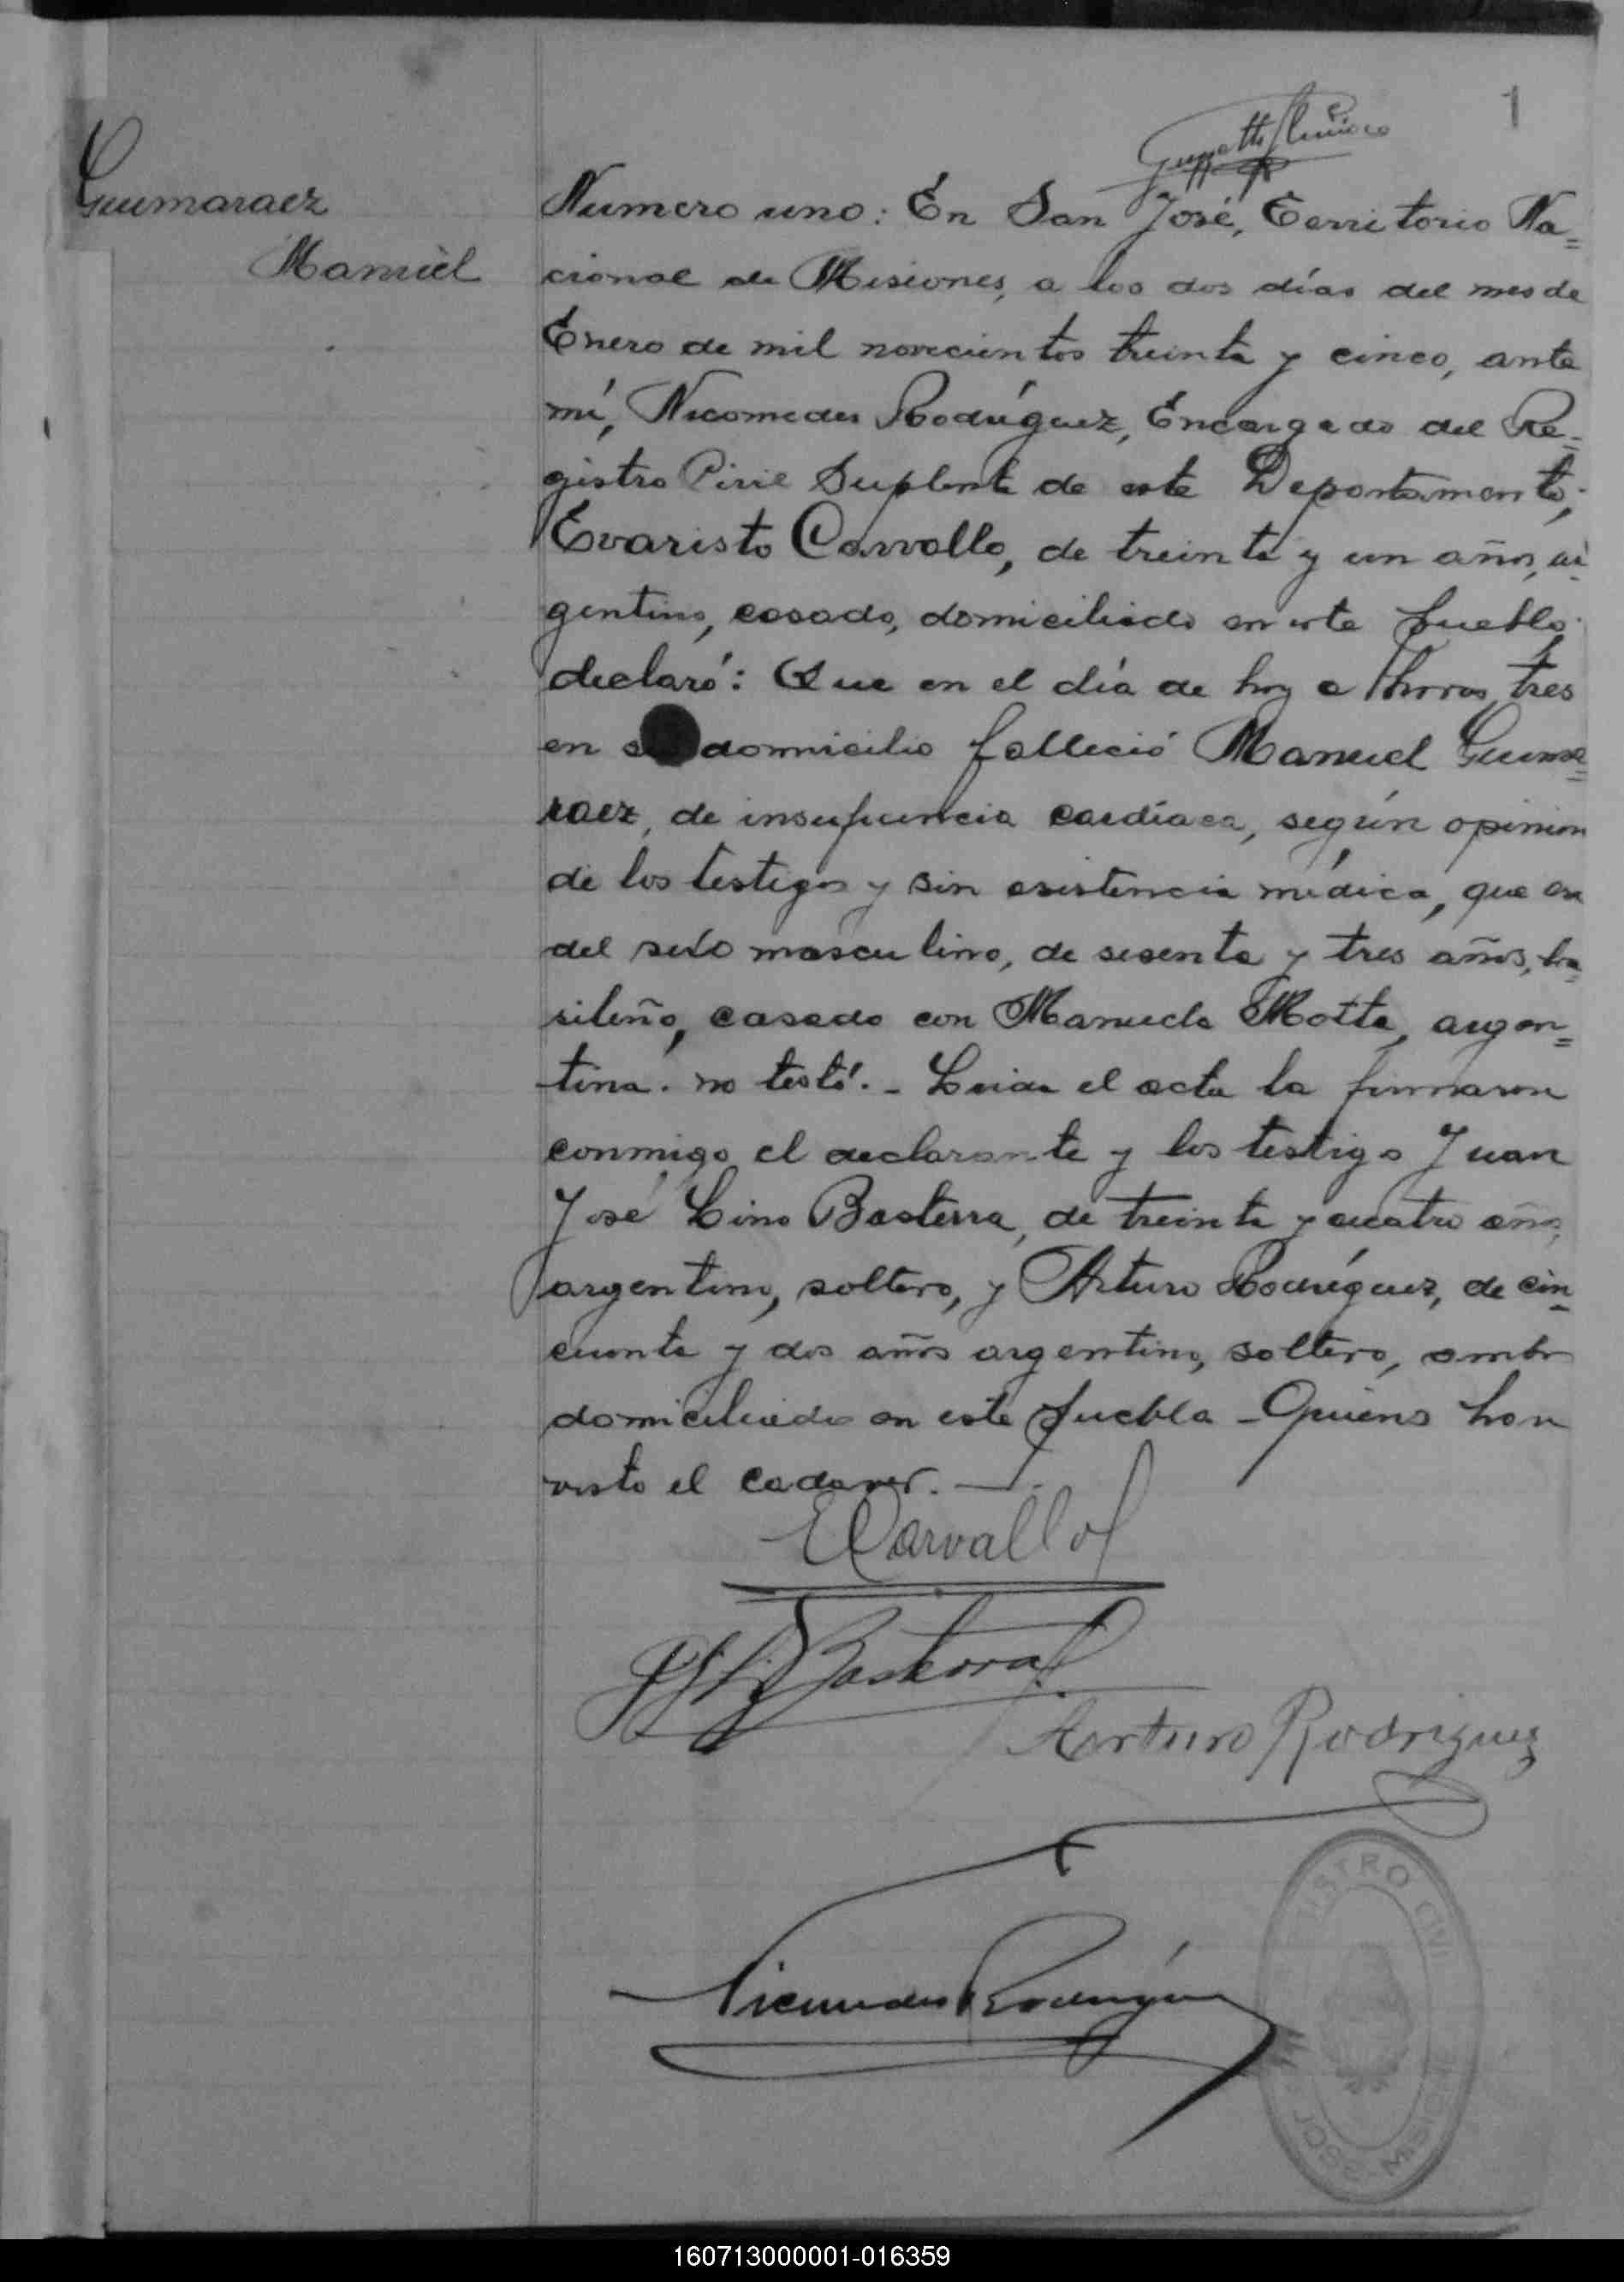 1
Guimaraez
Manuel
Numero uno: En San José, Territorio Na=
cional de Misiones, a los dos días del mes de
Enero de mil novecientos treinta y cinco, ante
mí, Nicomedes Rodríguez, Encargado del Re=
gistro Civil Suplente de este Departamento;
Evaristo Carvallo, de treinta y un años, ar
gentino, casado, domiciliado en este pueblo
declaró: Que en el día de hoy a horas tres
en su domicilio falleció Manuel Guima=
raez, de insuficiencia cardíaca, según opinion
de los testigos y sin asistencia médica, que era
del sexo masculino, de sesenta y tres años, bra=
sileño, casado con Manuela Motta, argen=
tina. no testó. - Leida el acta la firmaron
conmigo el declarante y los testigo Juan
José Lino Basterra, de treinta y cuatro años,
argentino, soltero, y Arturo Rodríguez, de cin-
cuenta y dos años argentino, soltero, ambos
domiciliados en este pueblo - Quienes han
visto el cadaver. -
ECarvallo
J J L Basterra
Arturo Rodriguez
Nicomedes Rodríguez
REGISTRO CIVIL
SAN JOSE - MISIONES
160713000001-016359